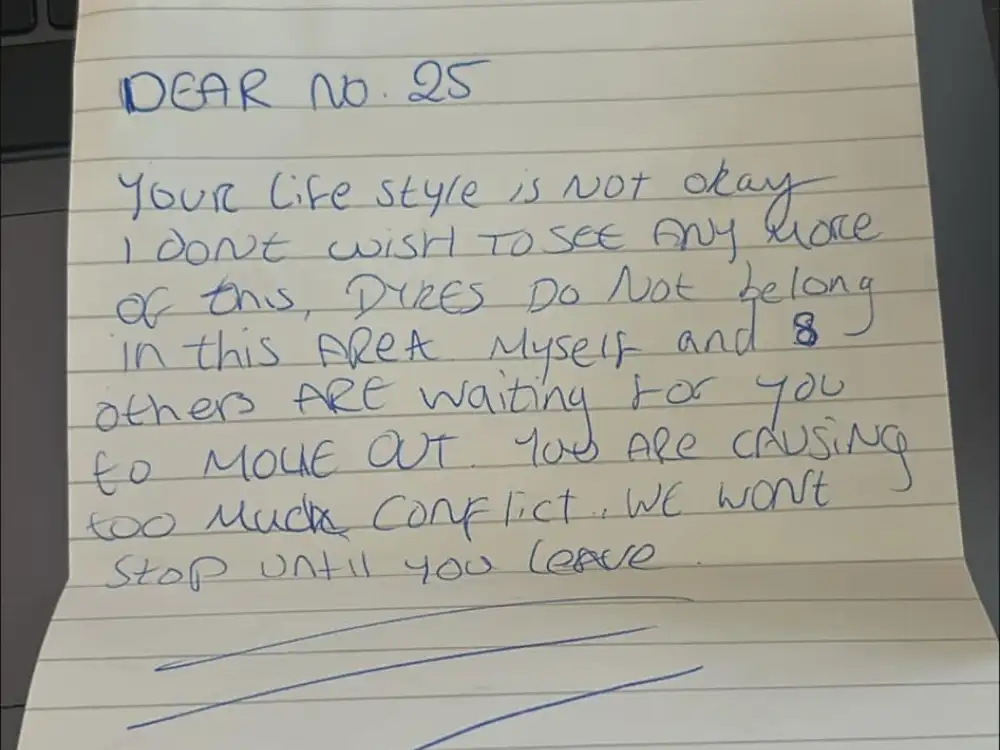 DEAR NO. 25
YOUR Life style is NOT okay
I DONt WISH TO SEE ANY More
of this, DYKES DO Not belong
in this AREA. Myself and 8
others ARE waiting for you
to MOVE OUT. You ARE CAUSING
too Much Conflict. WE wont
Stop until you leave.